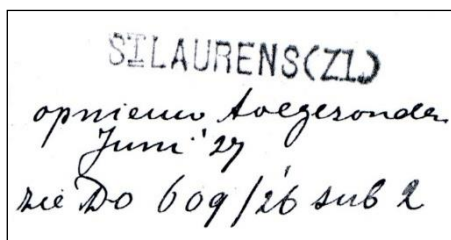 ST LAURENS(ZL)
opnieuw toegezonden
Juni '27
zie Do 609/26 sub 2